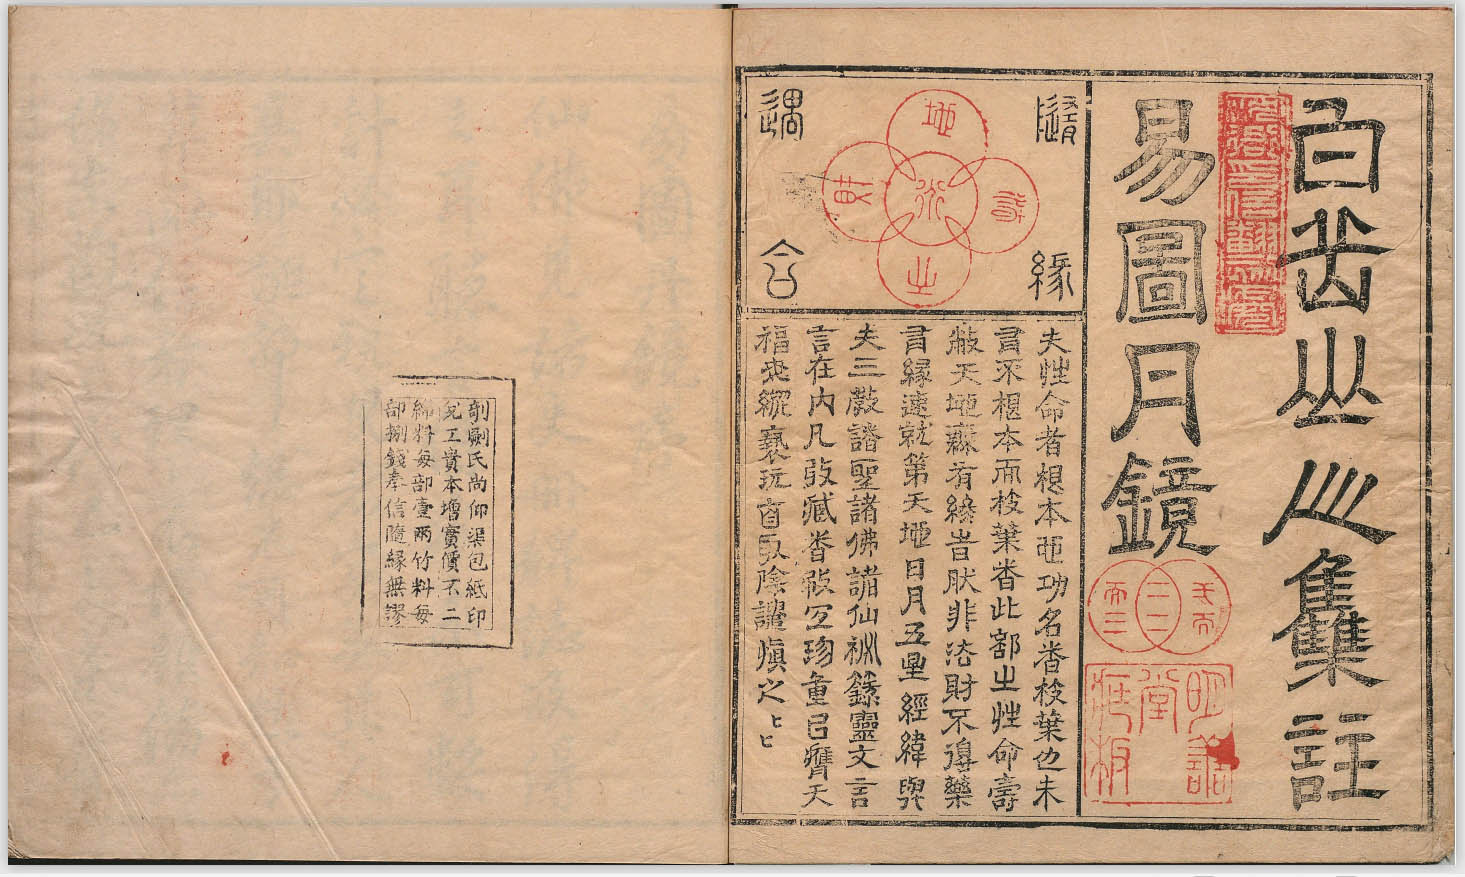 白岳山人集註
易圖月鏡
隨緣
遇合
地
術
之
夫性命者根本也功名者枝葉也未
有不根本而枝葉者此部之性命壽
敝天地有緣者非法財不遇藥
有緣速就第天地日月五星經緯與
夫三教諸聖諸佛諸仙籙靈文言
言在內凡收藏者宜珍重天
福褻玩取陰譴慎之
剞劂氏尚仰渠包紙印
工貴本增實價不二
綿料每部壹兩竹料每
部捌錢奉信隨緣無謬